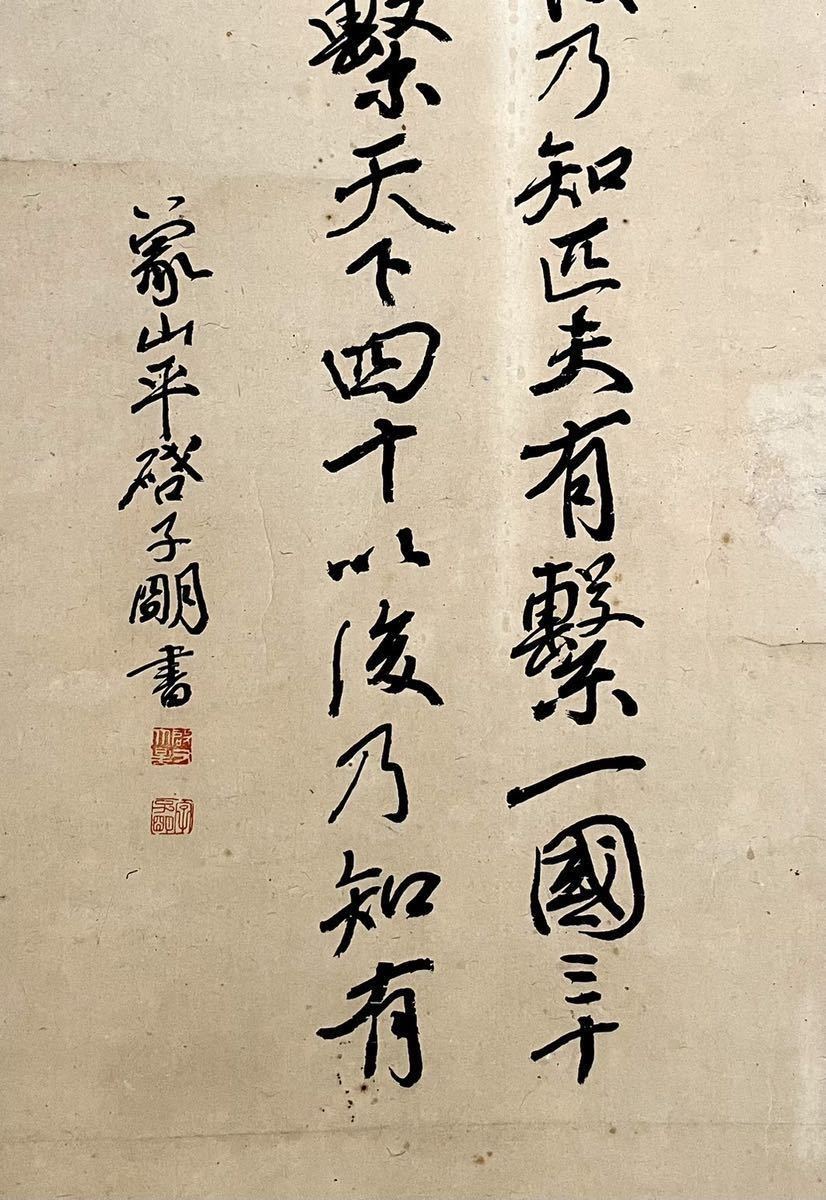 後乃知匹夫有繫一國三十
繫天下四十以後乃知有
象山平啓子明書